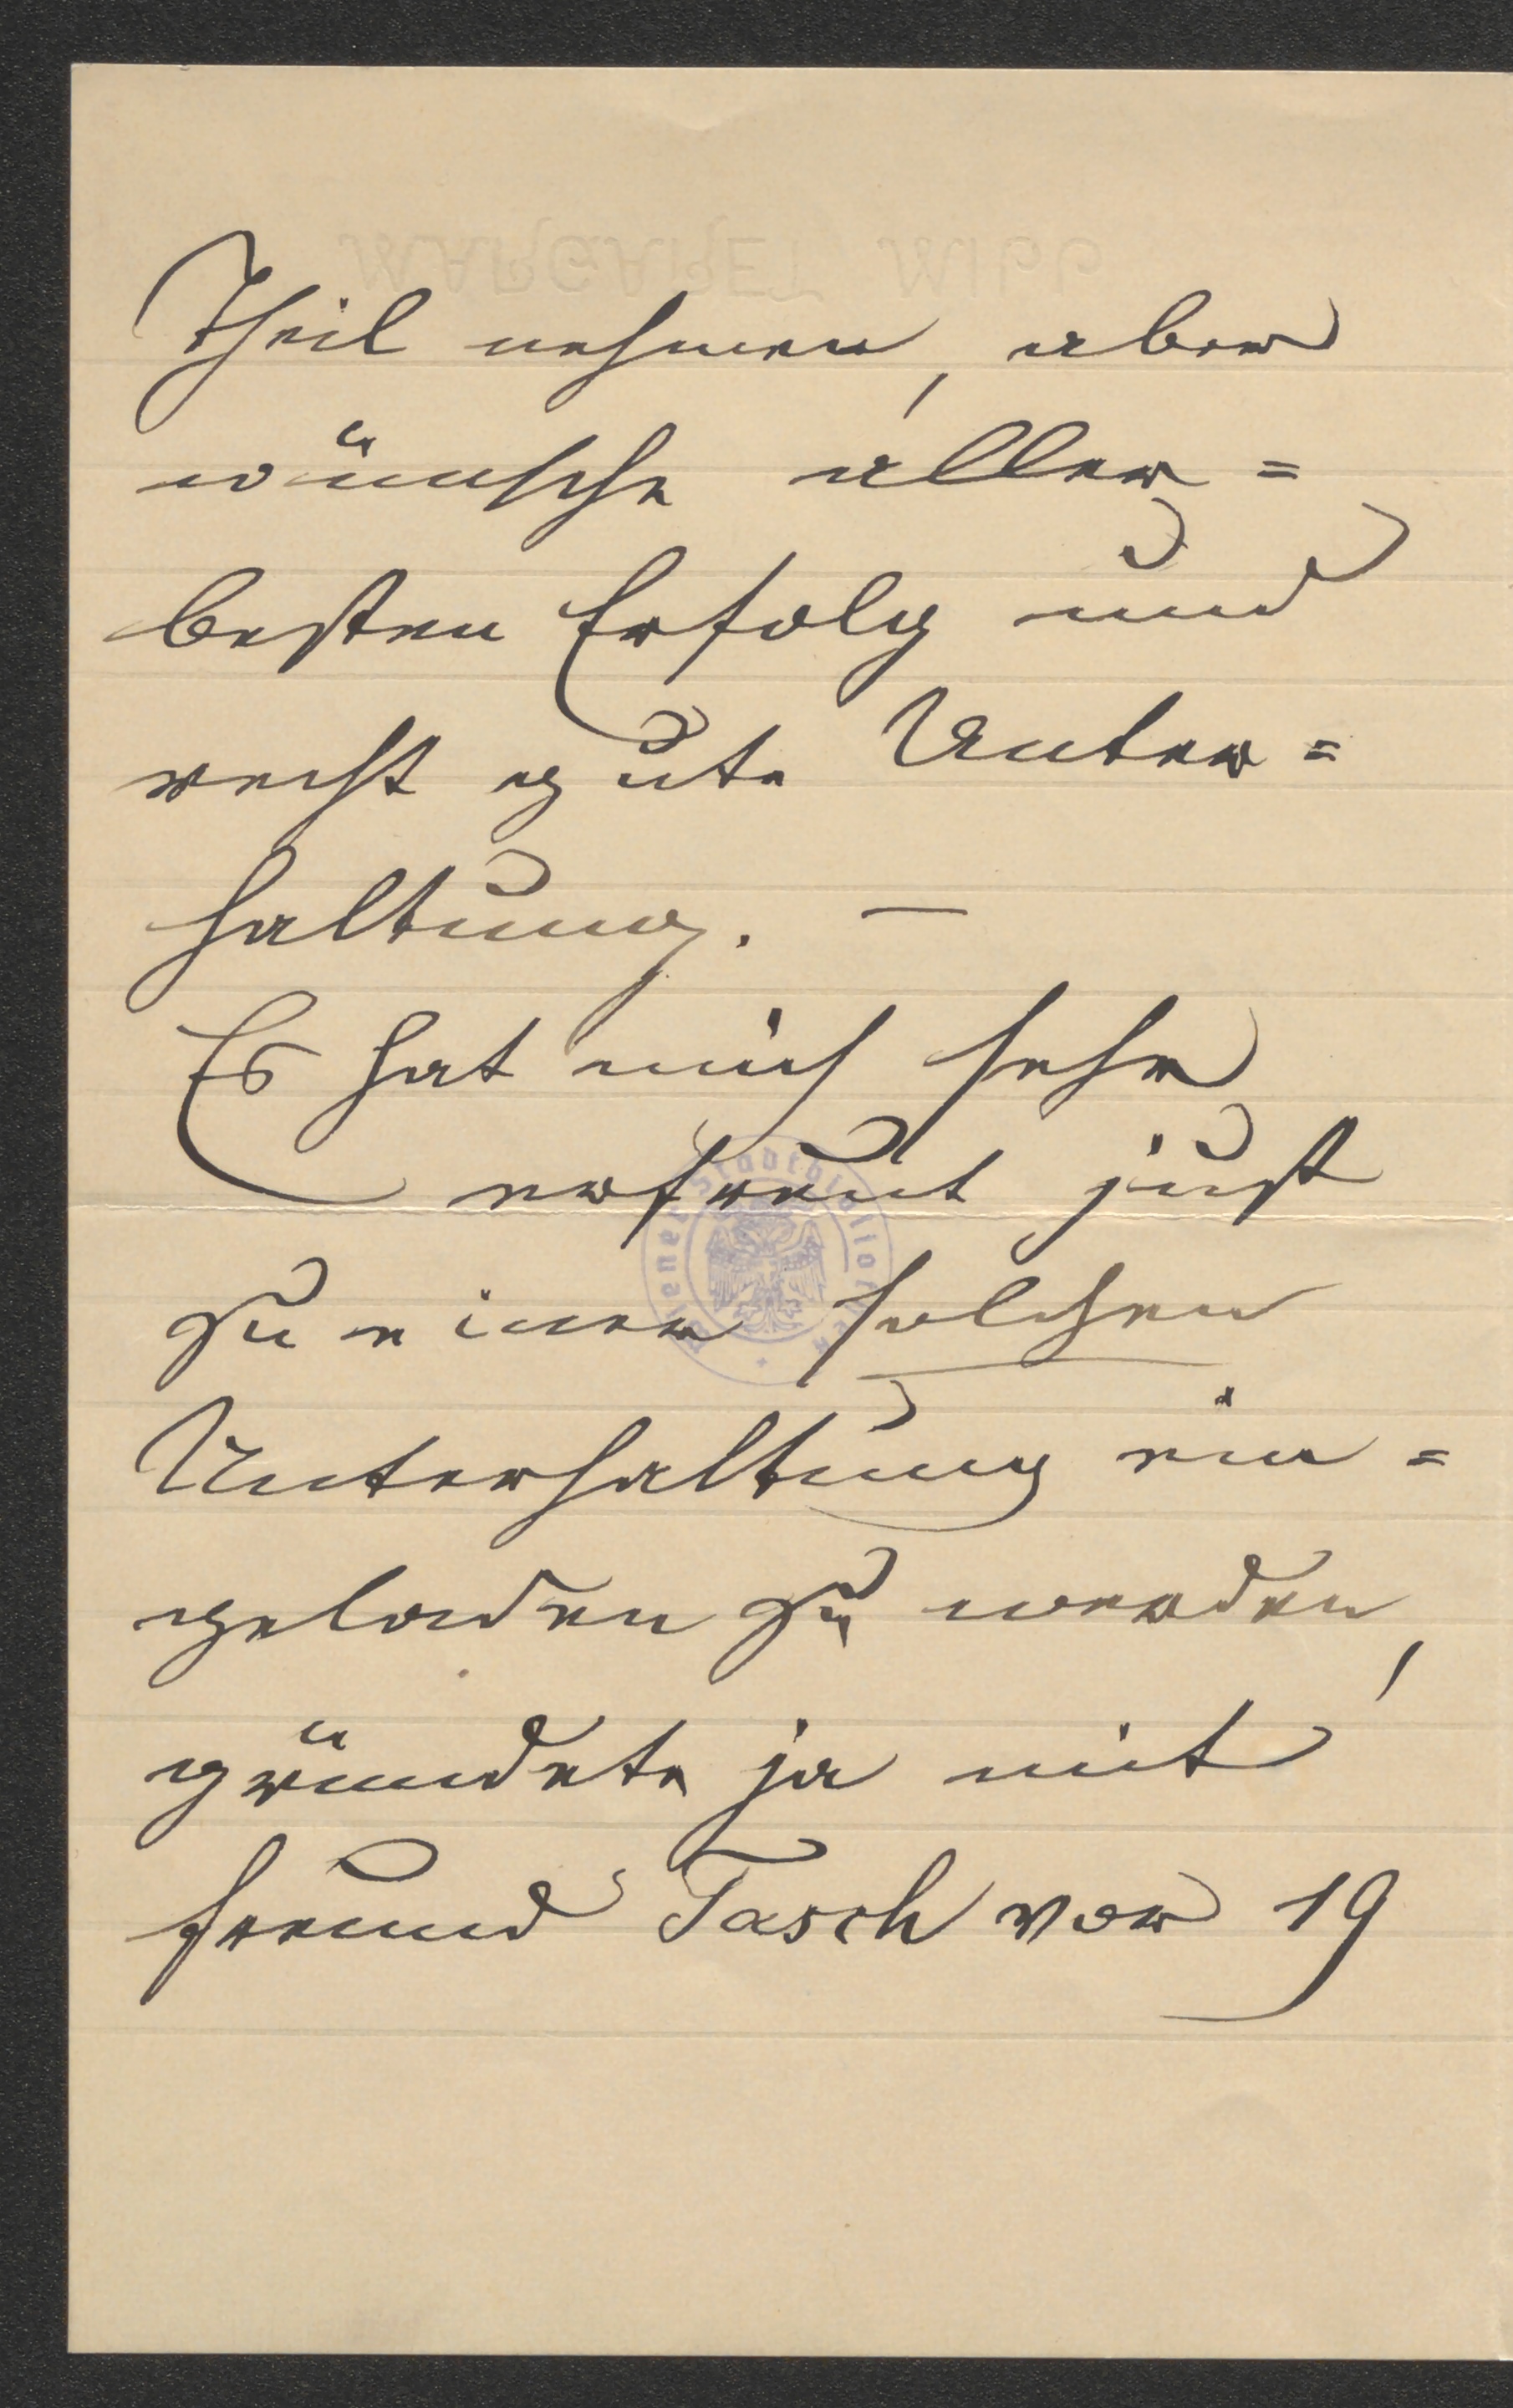 Theil nehmen, aber
wünsche aller=
besten Erfolg und
recht gute Unter=
haltung. —
Es hat mich sehr
erfreut just
zu einer solchen
Unterhaltung ein=
geladen zu werden,
gründete ja mit
Freund Tasch vor 19
Wiener Stadtbibliothek